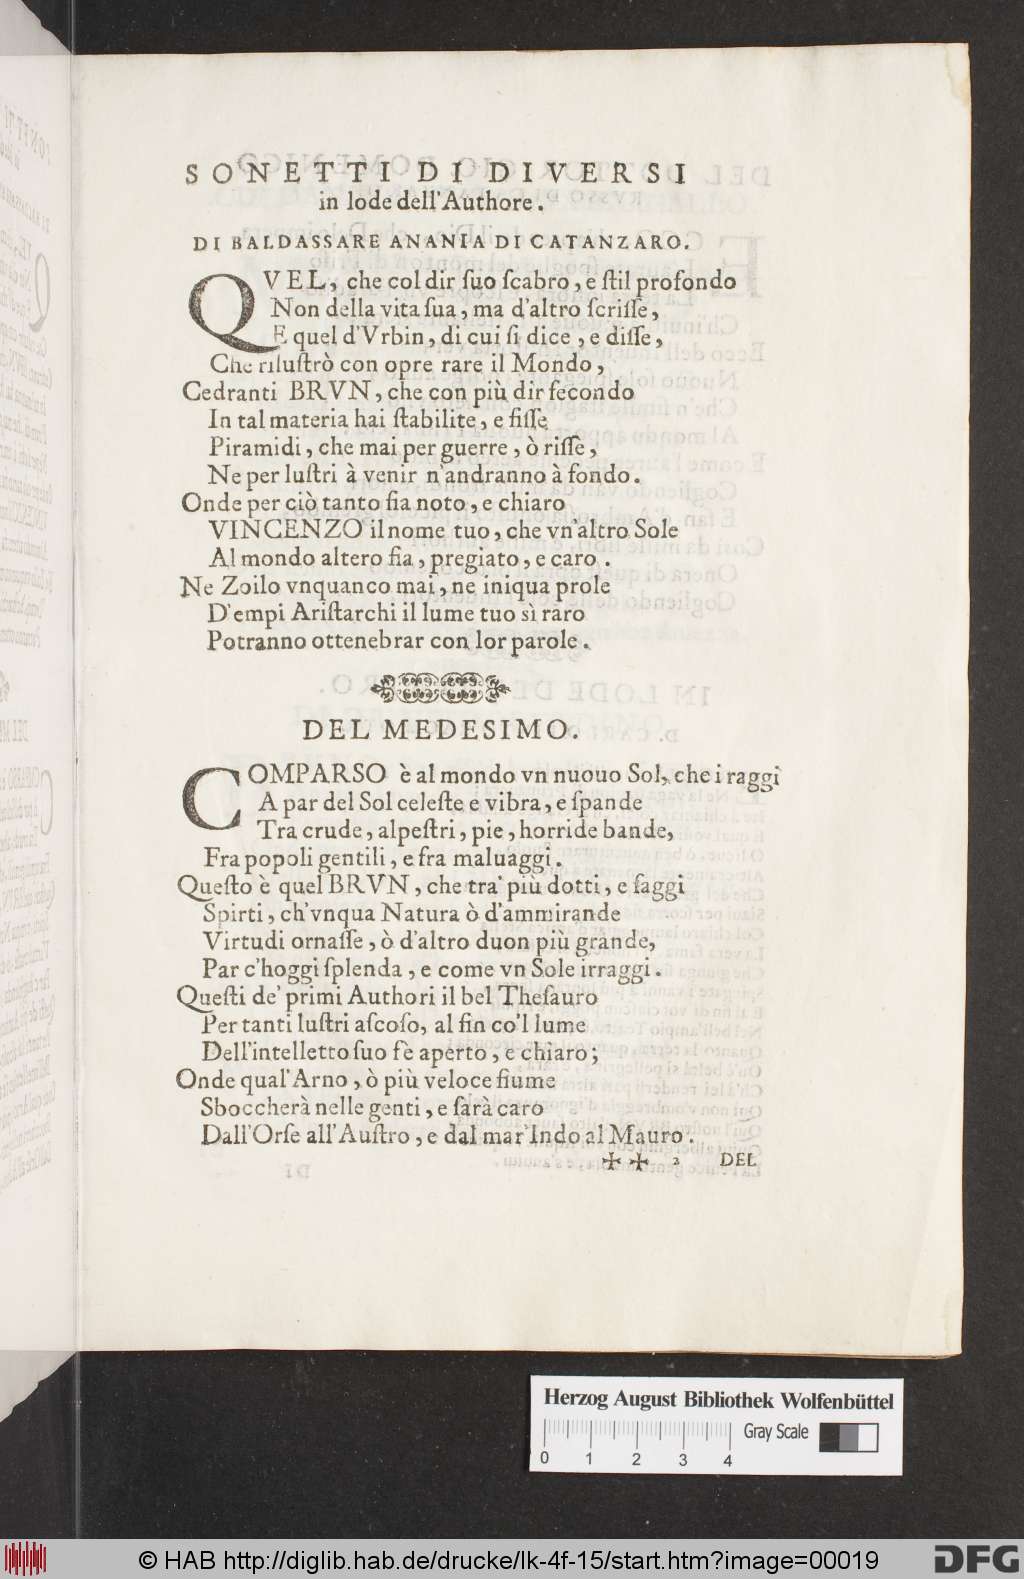 SONETTI DI DIVERSI
in lode dell'Authore.
DI BALDASSARE ANANIA DI CATANZARO.
QVEL, che col dir ſuo ſcabro, e ſtil profondo
Non della vita ſua, ma d'altro ſcriſſe,
E quel d'Vrbin, di cui ſi dice, e diſſe,
Che riluſtrò con opre rare il Mondo,
Cedranti BRVN, che con più dir fecondo
In tal materia hai ſtabilite, e fiſſe
Piramidi, che mai per guerre, ò riſſe,
Ne per luſtri à venir n'andranno à fondo.
Onde per ciò tanto fia noto, e chiaro
VINCENZO il nome tuo, che vn'altro Sole
Al mondo altero fia, pregiato, e caro.
Ne Zoilo vnquanco mai, ne iniqua prole
D'empi Ariſtarchi il lume tuo sì raro
Potranno ottenebrar con lor parole.
DEL MEDESIMO.
COMPARSO è al mondo vn nuouo Sol, che i raggi
A par del Sol celeſte e vibra, e ſpande
Tra crude, alpeſtri, pie, horride bande,
Fra popoli gentili, e fra maluaggi.
Queſto è quel BRVN, che tra' più dotti, e ſaggi
Spirti, ch'vnqua Natura ò d'ammirande
Virtudi ornaſſe, ò d'altro duon più grande,
Par c'hoggi ſplenda, e come vn Sole irraggi.
Queſti de' primi Authori il bel Theſauro
Per tanti luſtri aſcoſo, al fin co'l lume
Dell'intelletto ſuo fè aperto, e chiaro;
Onde qual'Arno, ò più veloce fiume
Sboccherà nelle genti, e ſarà caro
Dall'Orſe all'Auſtro, e dal mar'Indo al Mauro.
✠ ✠ 2 DEL
Herzog August Bibliothek Wolfenbüttel
Gray Scale
0 1 2 3 4
© HAB http://diglib.hab.de/drucke/lk-4f-15/start.htm?image=00019
DFG